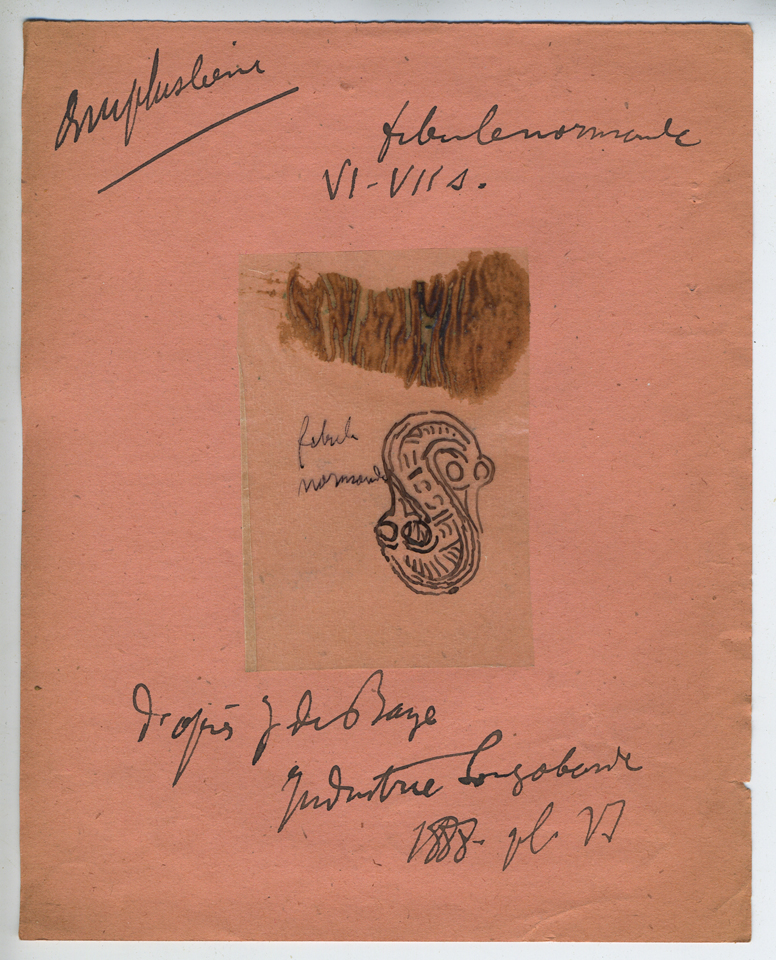 Amphisbène
fibule normande
VI-VII s.
fibule
normande
d'après J de Baye
Industrie Longobarde
1888. pl. VI